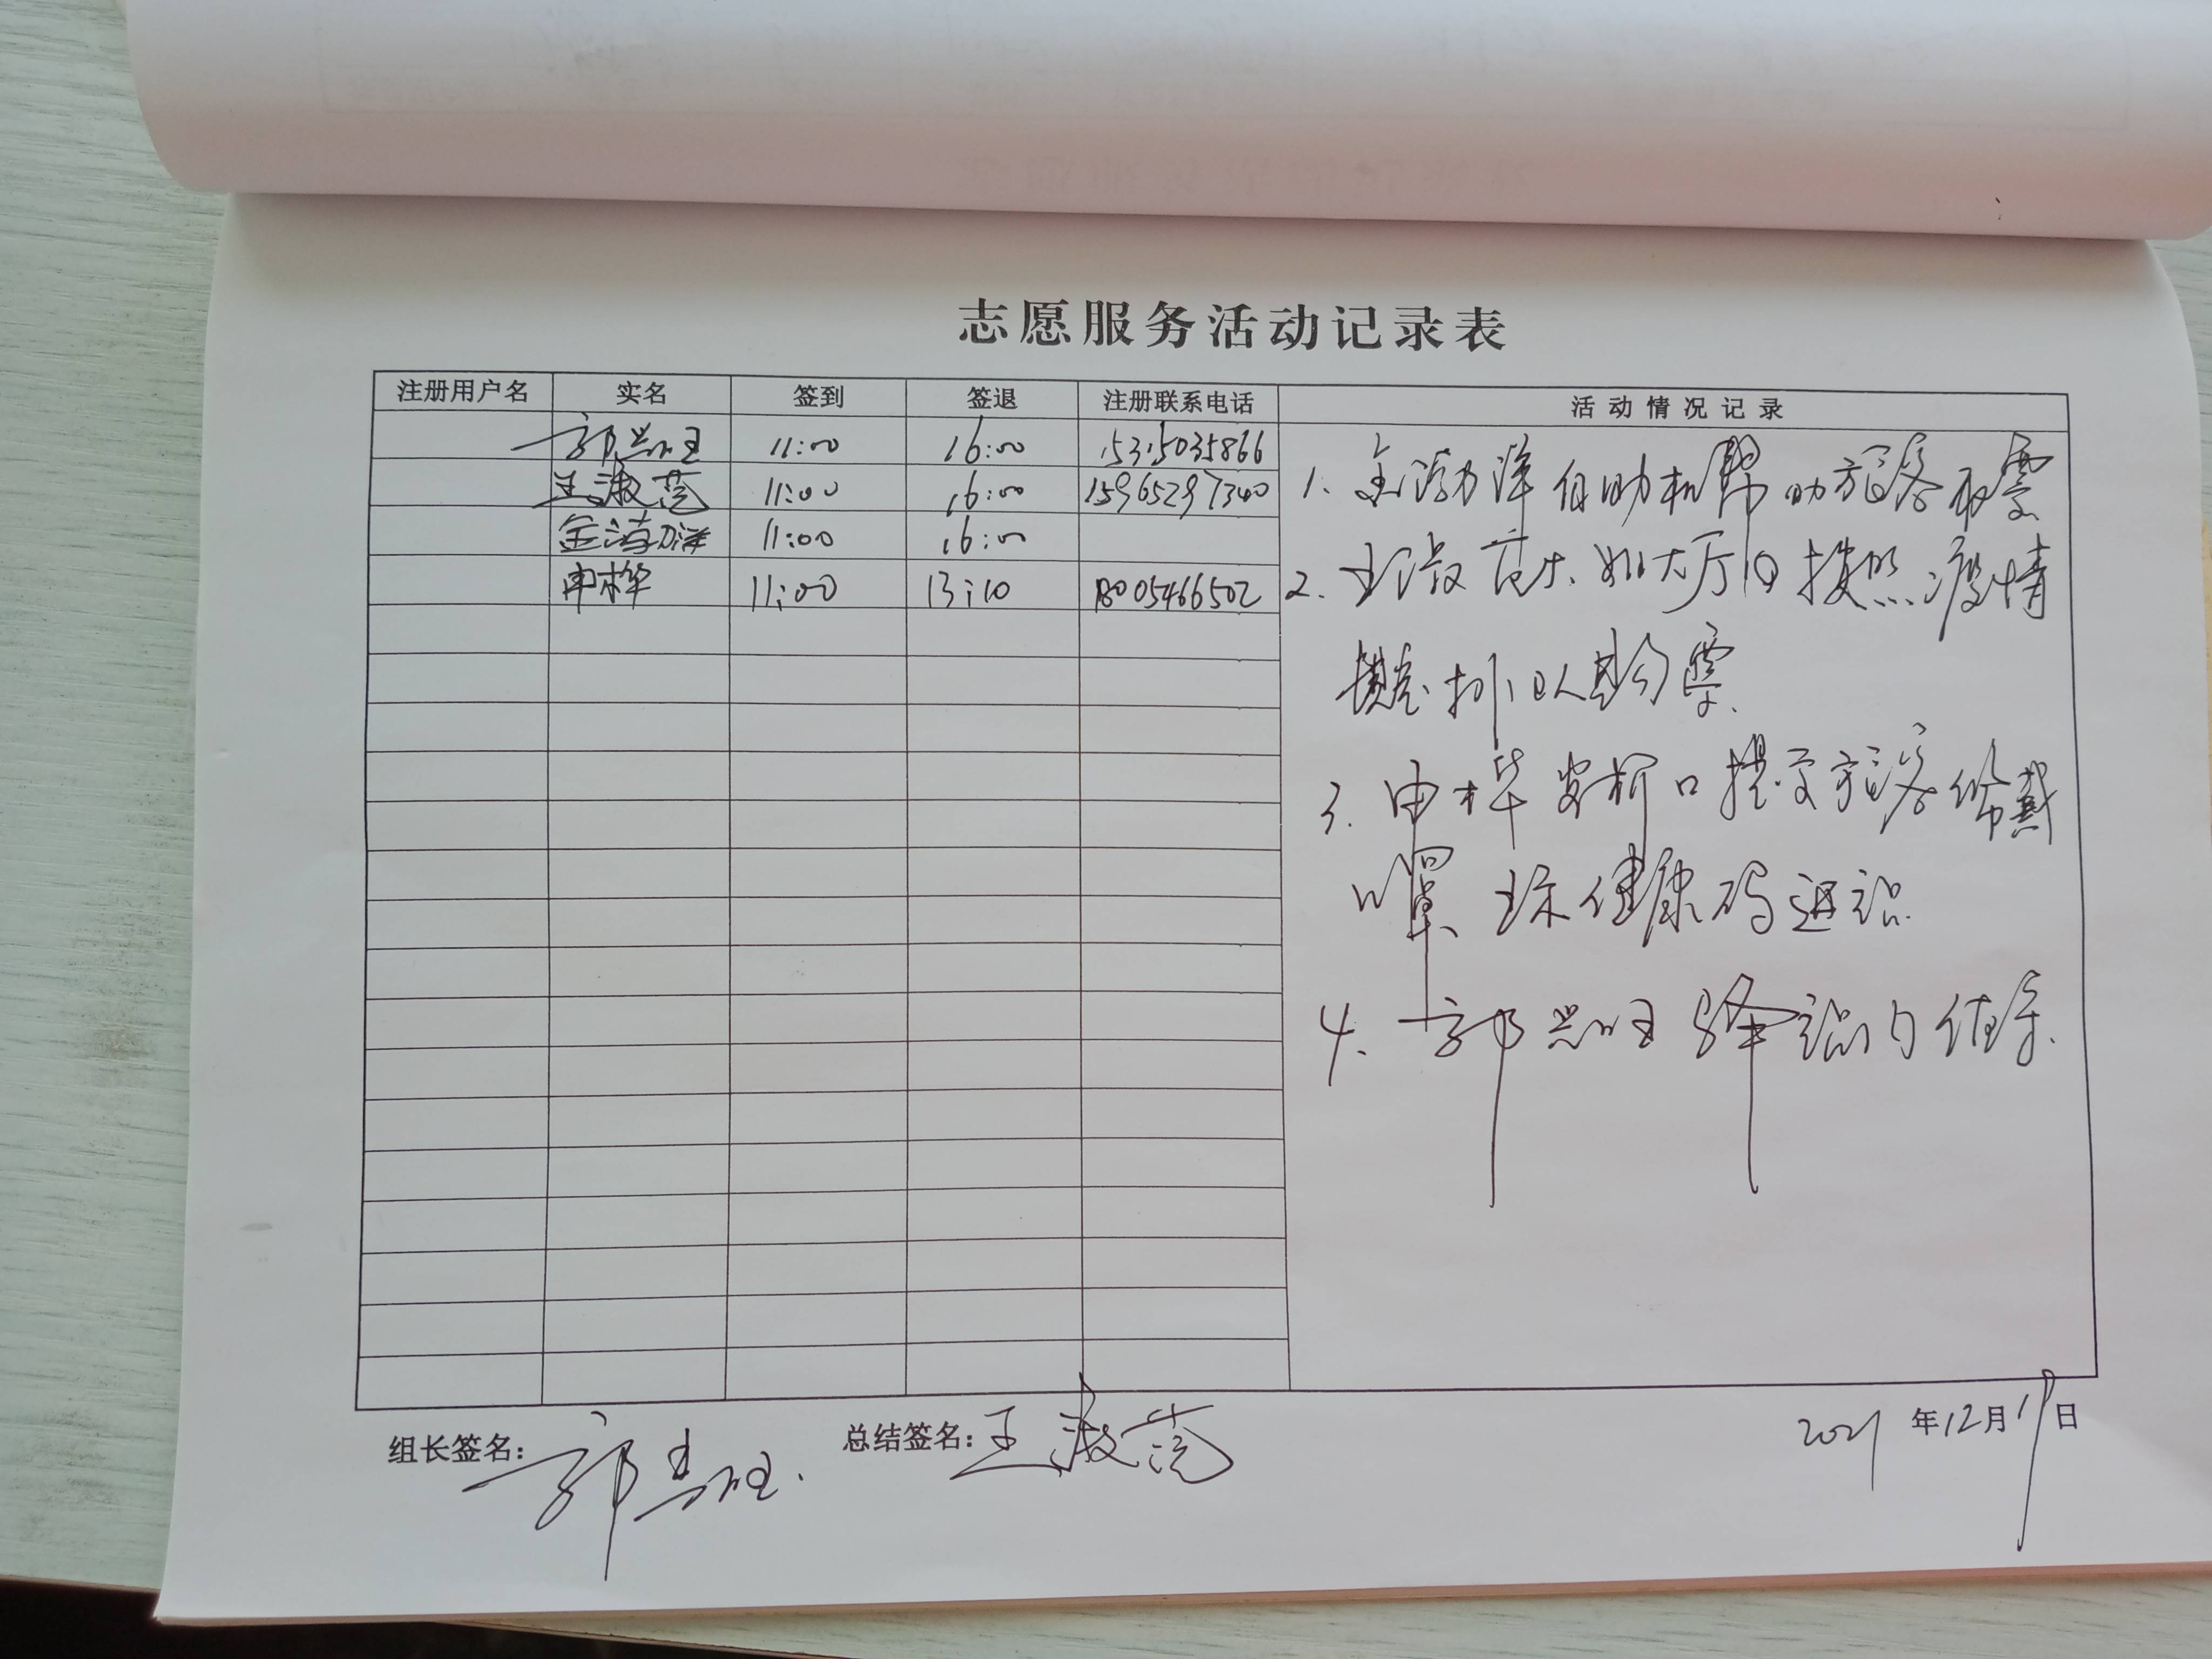 志愿服务活动记录表
注册用户名 实名 签到 签退 注册联系电话 活动情况记录
郭 11:00 16:00 15315035866
王淑范 11:00 16:00 15965297340
金涛洋 11:00 16:00
申桦 11:00 13:10 18005466502
1. 金 洋自助机帮助旅客取票
2. 王淑范 大厅 按照疫情
排队 票.
3. 申桦 口提 旅客佩戴
口罩 健康码进站.
4. 郭 驿站内值守.
组长签名: 郭 总结签名: 王淑范 2021年12月19日